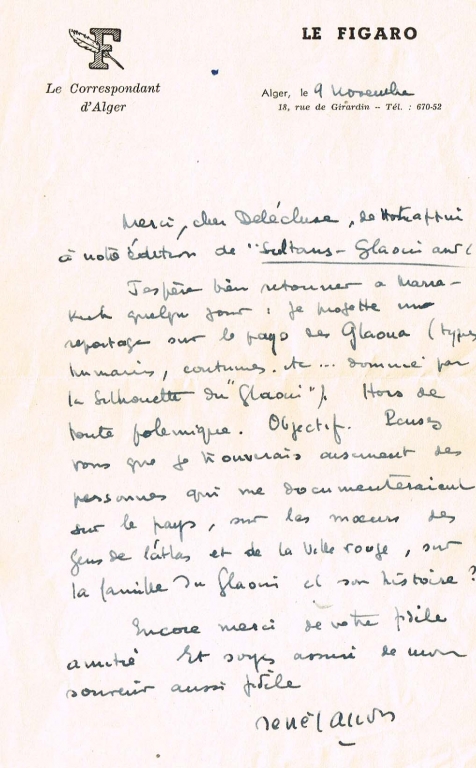 F
LE FIGARO
Le Correspondant
d'Alger
Alger, le 9 Novembre
18, rue de Girardin -- Tél. : 670-52
Merci, cher Delécluse, de votre appui
à notre édition de "Sultans-Glaoui and
J'espère bien retourner à Marra-
kech quelque jour : je projette un
reportage sur le pays des Glaoua (types
humains, coutumes. etc... dominé par
la silhouette du "Glaoui"). Hors de
toute polémique. Objectif. Pensez
vous que je trouverais aisément des
personnes qui me documenteraient
sur le pays, sur les mœurs des
gens de l'atlas et de la Ville rouge, sur
la famille du Glaoui et son histoire ?
Encore merci de votre fidèle
amitié Et soyez assuré de mon
souvenir aussi fidèle